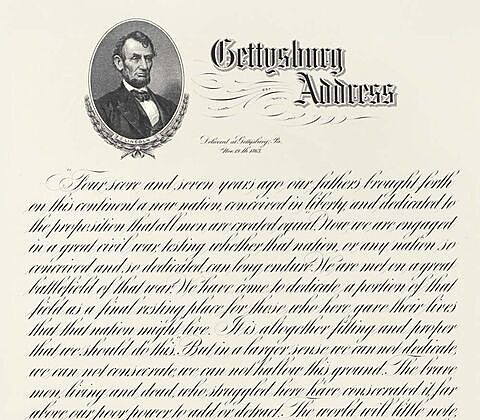 Gettysburg
Address
A. LINCOLN
Delivered at Gettysburg, Pa.
Nov. 19th 1863.
Four score and seven years ago our fathers brought forth
on this continent a new nation, conceived in liberty, and dedicated to
the proposition that all men are created equal. Now we are engaged
in a great civil war, testing whether that nation, or any nation, so
conceived and so dedicated, can long endure. We are met on a great
battlefield of that war. We have come to dedicate a portion of that
field as a final resting place for those, who here gave their lives
that that nation might live. It is altogether fitting and proper
that we should do this. But in a larger sense we cannot dedicate,
we can not consecrate, we can not hallow this ground. The brave
men, living and dead, who struggled here have consecrated it, far
above our poor power to add or detract. The world will little note,